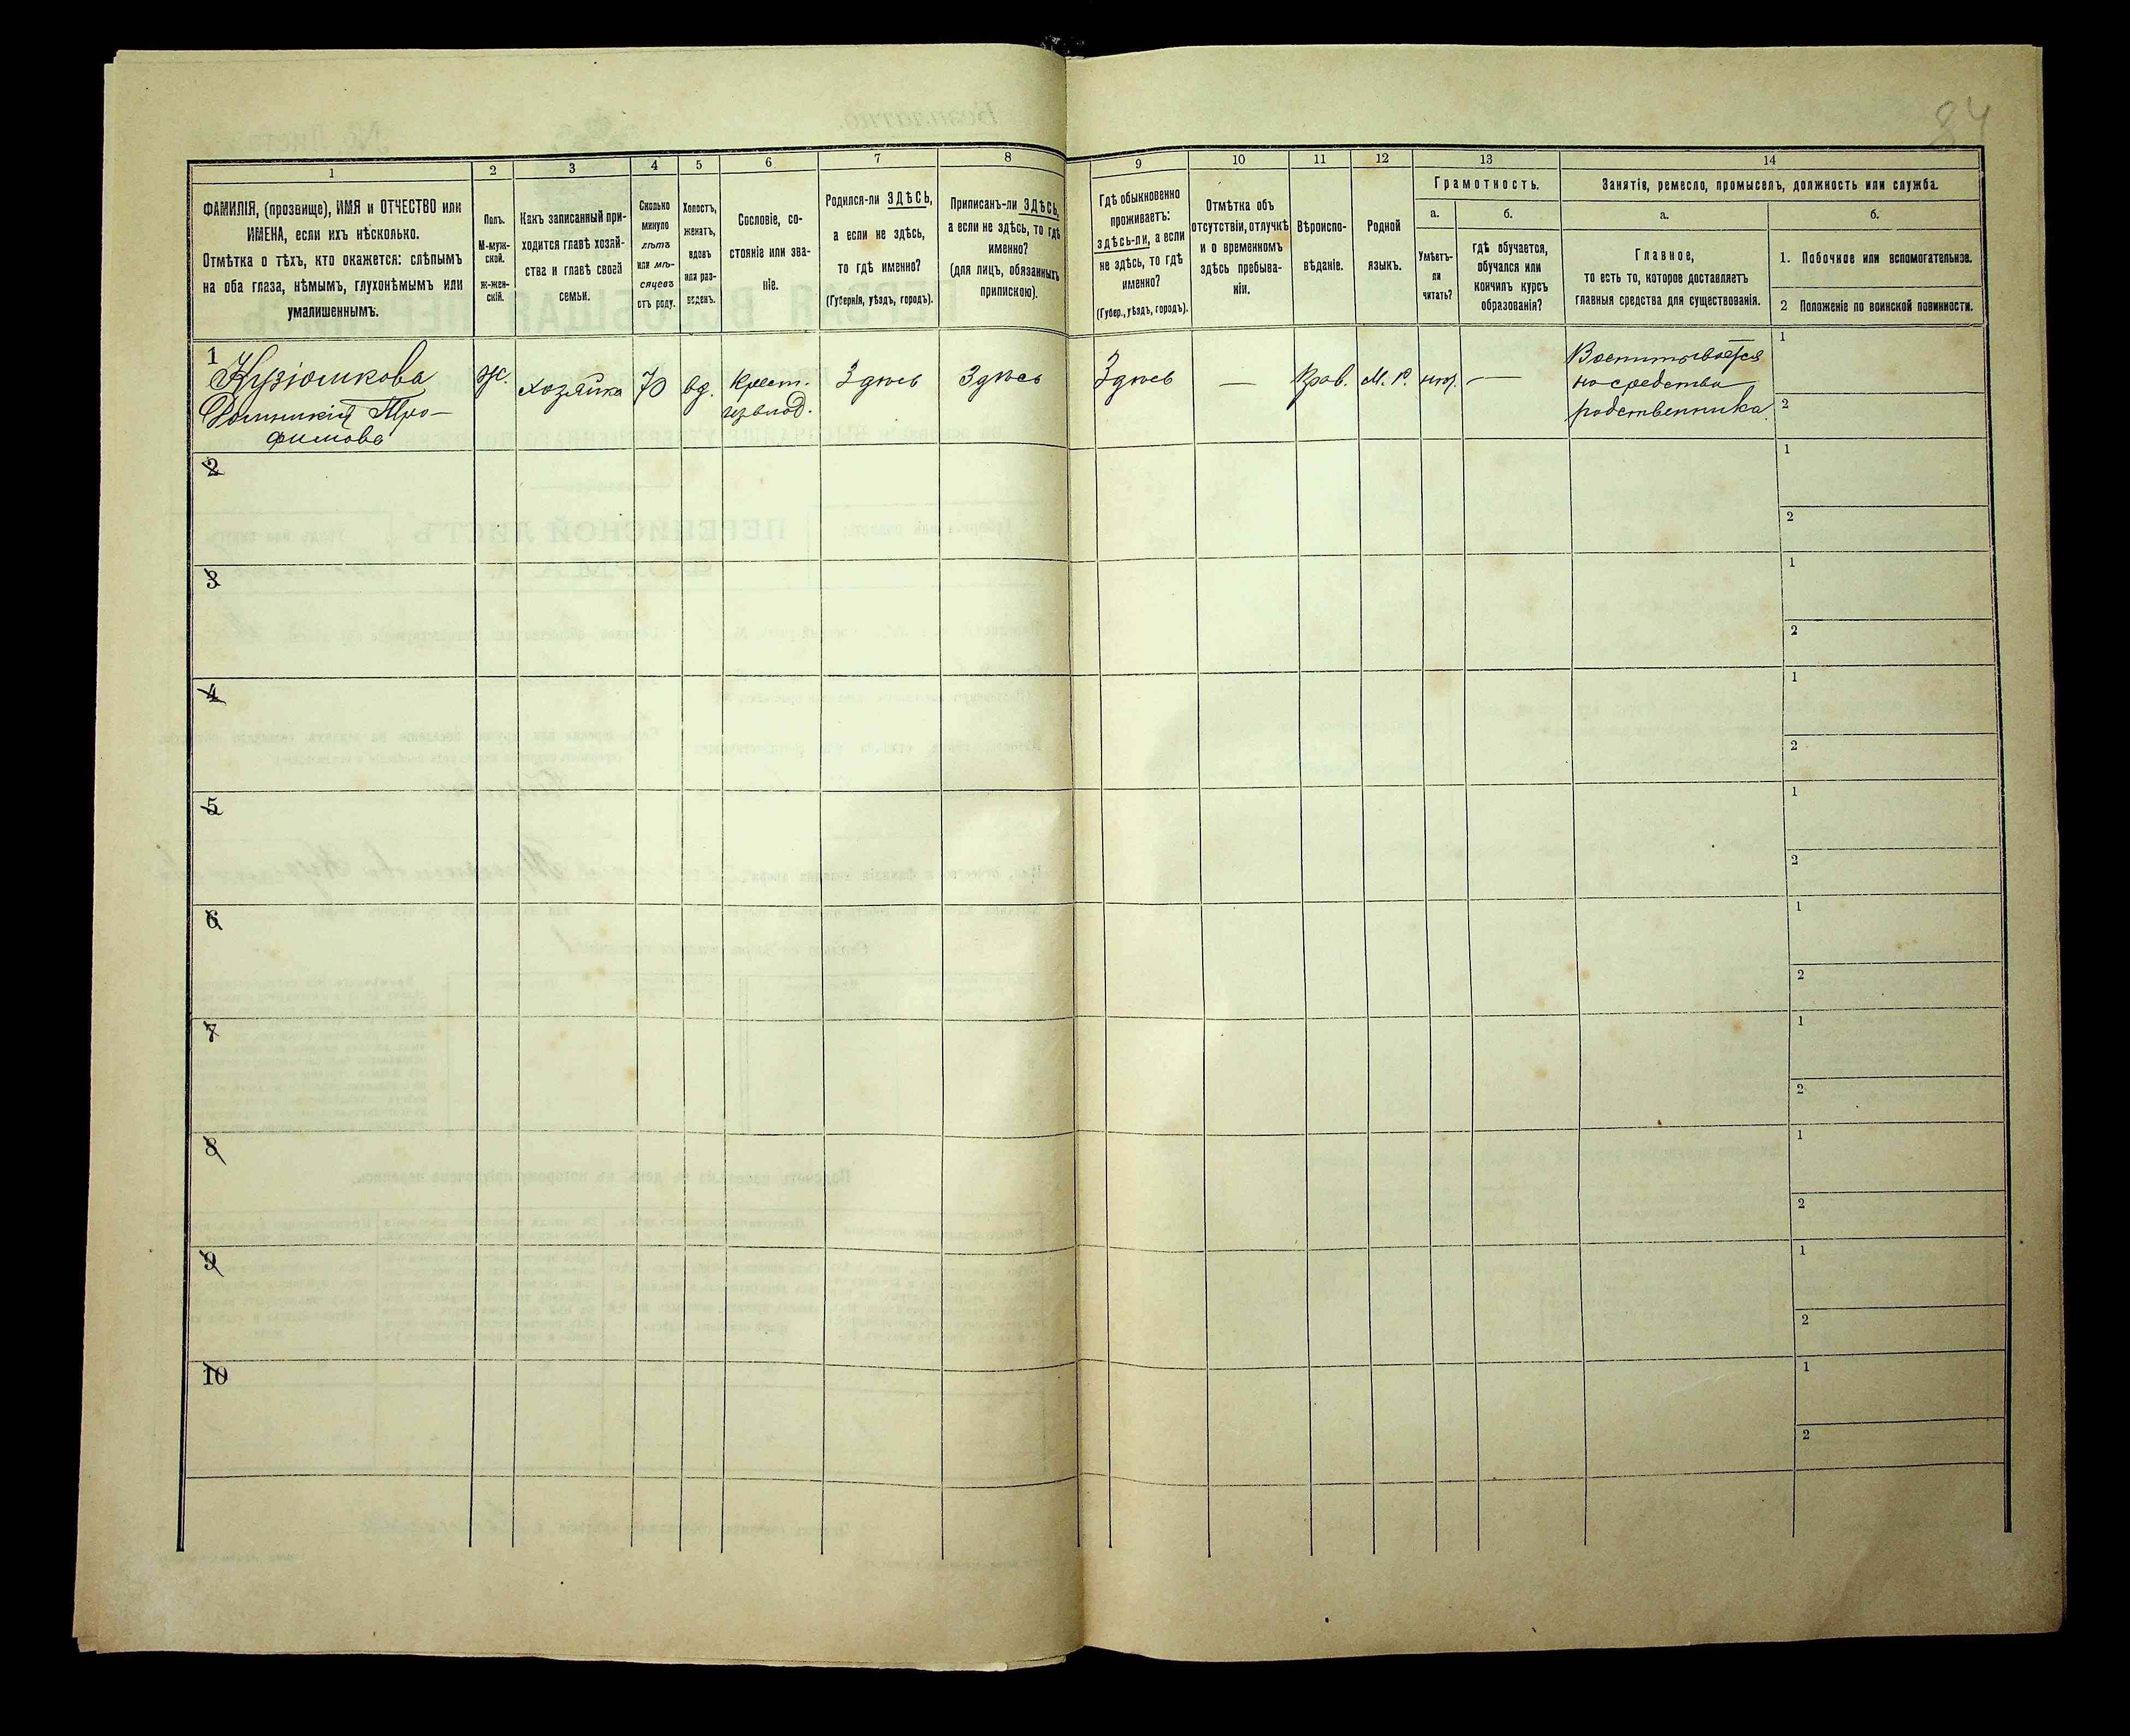 84
1
2
3
4
5
6
7
8
9
10
11
12
13
14
ФАМИЛІЯ, (прозвище), ИМЯ и ОТЧЕСТВО или
ИМЕНА, если ихъ нѣсколько.
Отмѣтка о тѣхъ, кто окажется: слѣпымъ
на оба глаза, нѣмымъ, глухонѣмымъ или
умалишеннымъ.
Полъ.
М-муж-
ской.
ж-жен-
скій.
Какъ записанный при-
ходится главѣ хозяй-
ства и главѣ своей
семьи.
Сколько
минуло
лѣтъ
или мѣ-
сяцевъ
отъ роду.
Холостъ,
женатъ,
вдовъ
или раз-
веденъ.
Сословіе, со-
стояніе или зва-
ніе.
Родился-ли ЗДѢСЬ,
а если не здѣсь,
то гдѣ именно?
(Губернія, уѣздъ, городъ).
Приписанъ-ли ЗДѢСЬ,
а если не здѣсь, то гдѣ
именно?
(для лицъ, обязанныхъ
припискою).
Гдѣ обыкновенно
проживаетъ:
здѣсь-ли, а если
не здѣсь, то гдѣ
именно?
(Губер., уѣздъ, городъ).
Отмѣтка объ
отсутствіи, отлучкѣ
и о временномъ
здѣсь пребыва-
ніи.
Вѣроиспо-
вѣданіе.
Родной
языкъ.
Грамотность.
а.
Умѣетъ-
ли
читать?
б.
гдѣ обучается,
обучался или
кончилъ курсъ
образованія?
Занятіе, ремесло, промыселъ, должность или служба.
а.
Главное,
то есть то, которое доставляетъ
главныя средства для существованія.
б.
1. Побочное или вспомогательное.
2 Положеніе по воинской повинности.
1
Кузіомкова
Трo-
фимова
ж.
хозяйка
70
вд.
Крест.
из влад.
Здѣсь
Здѣсь
Здѣсь
—
Прав.
М. Р.
нѣт.
—
Воспитывается
на средства
родственника.
1
2
2
1
2
3
1
2
4
1
2
5
1
2
6
1
2
7
1
2
8
1
2
9
1
2
10
1
2